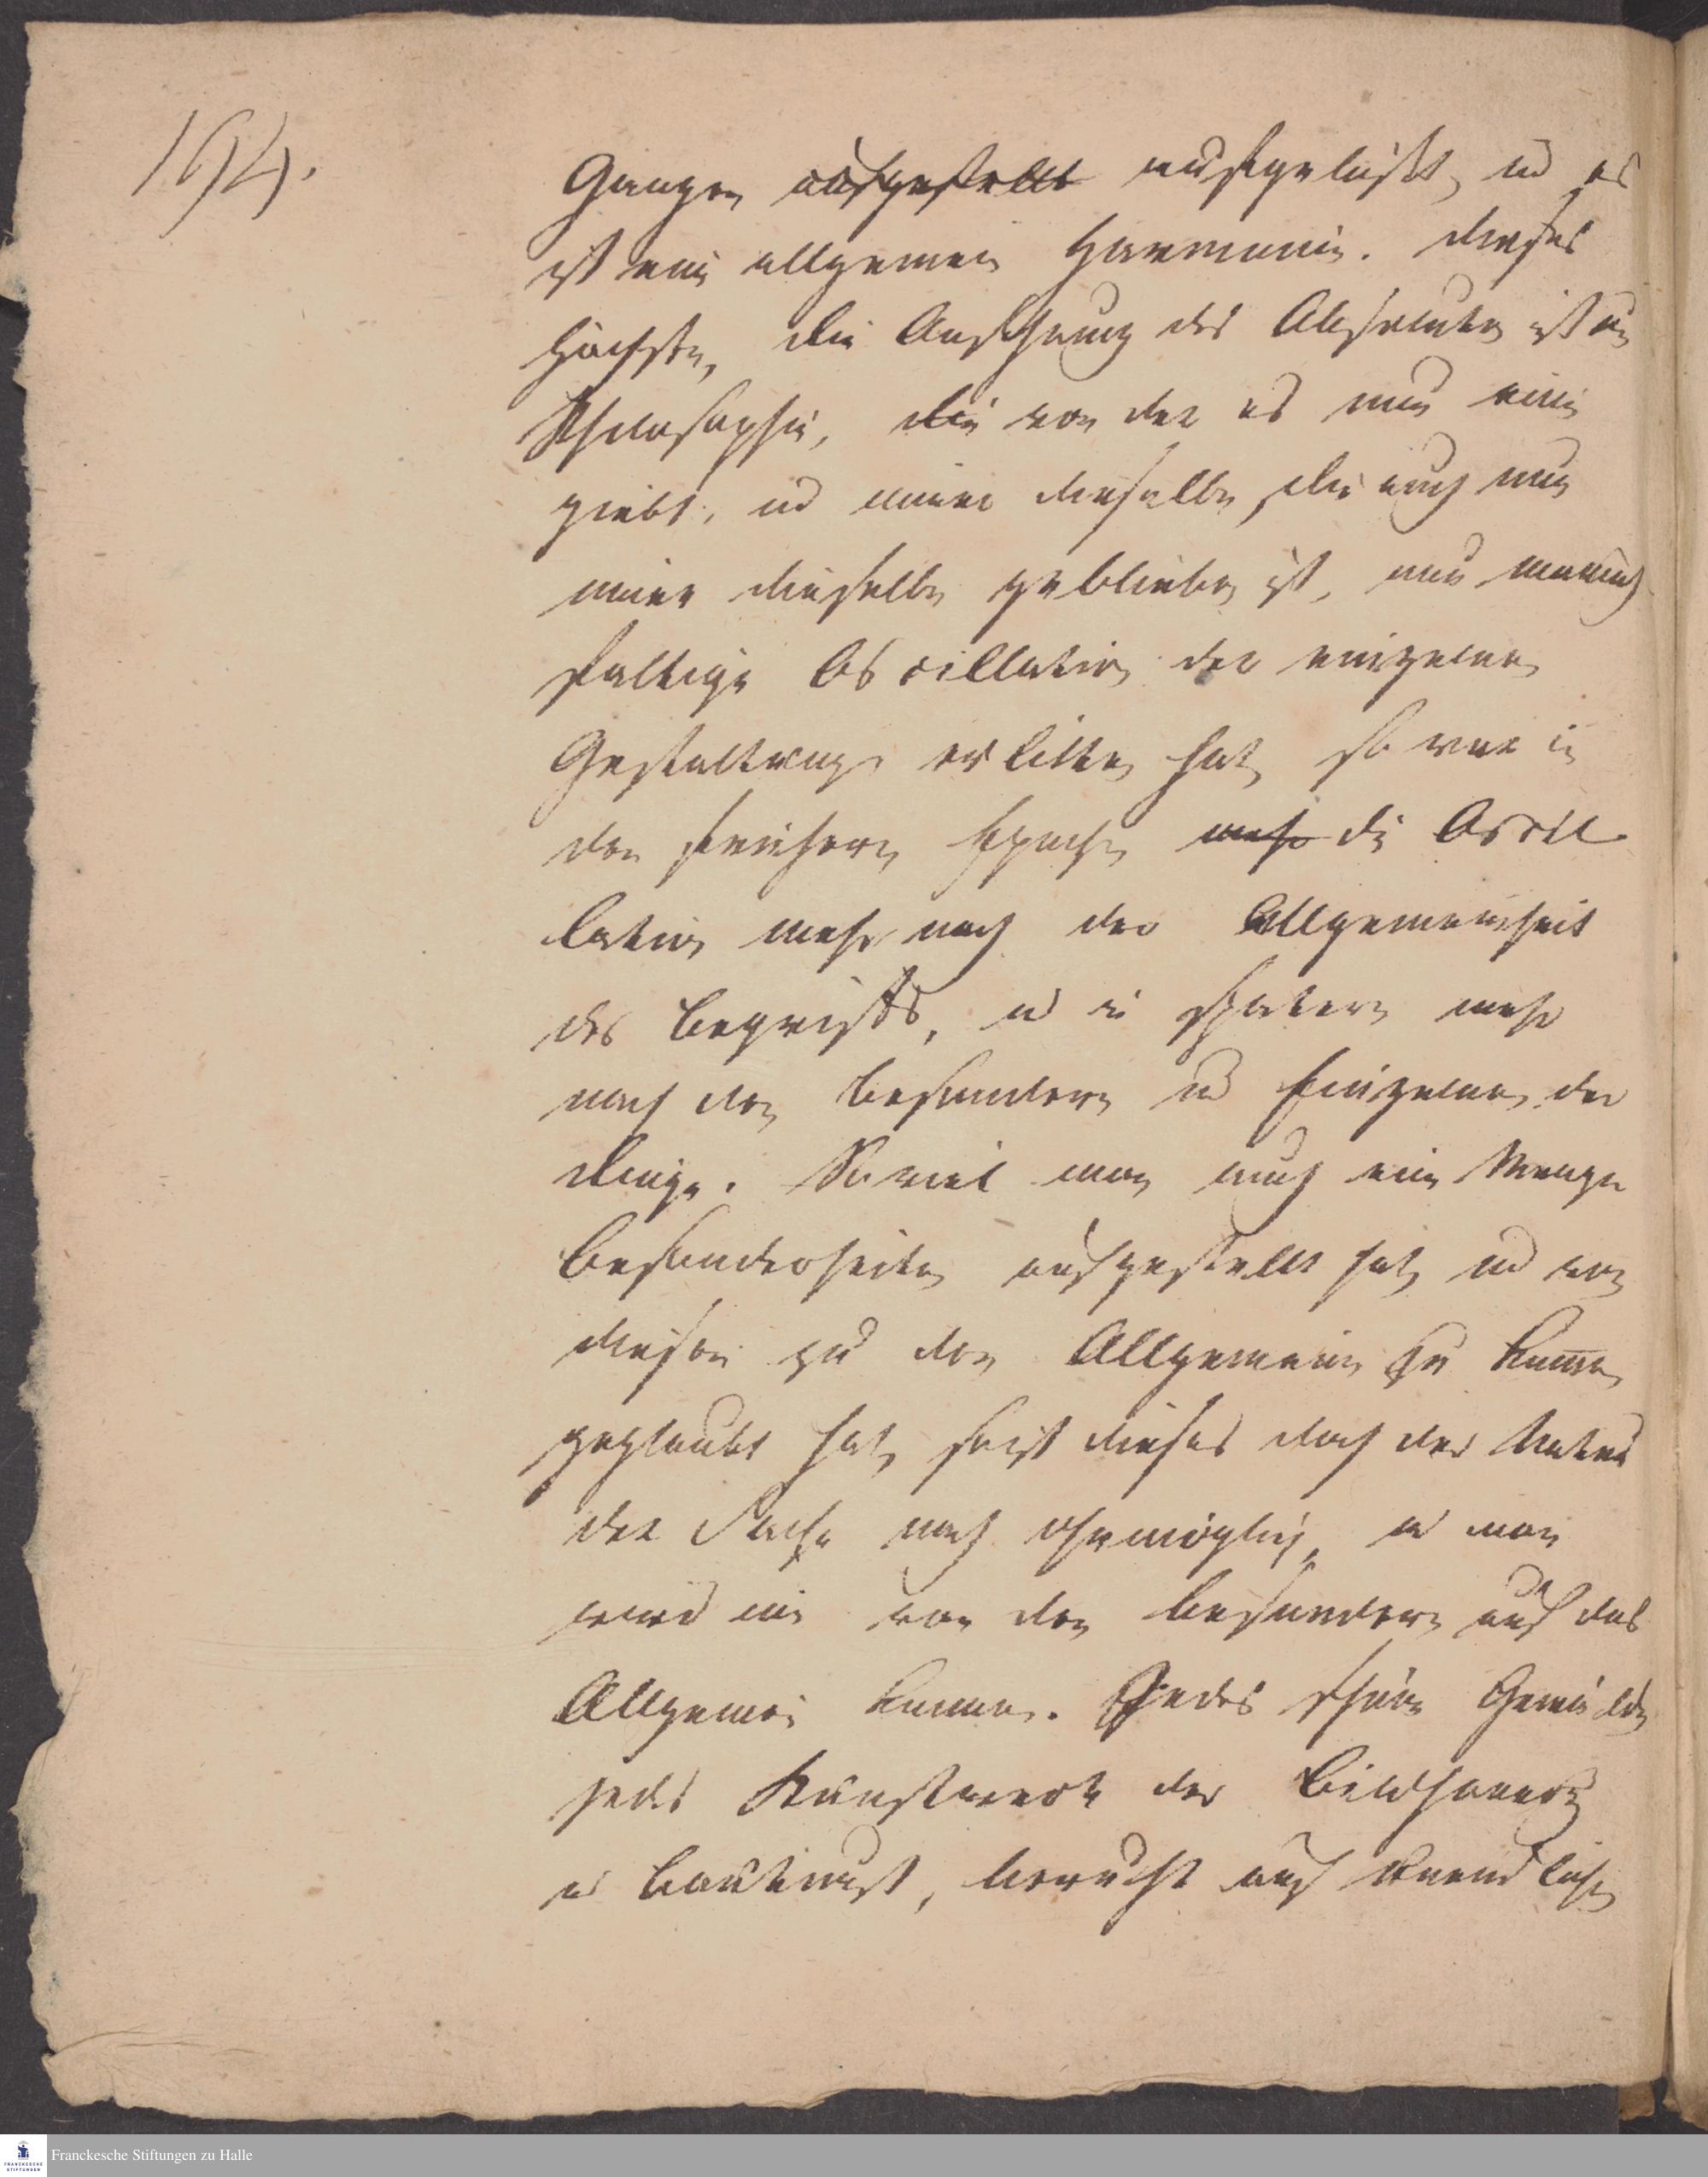 194.
Ganzen aufgestellt aufgelößt, und es
ist eine allgemein Harmonie. Dieses
Höchste, die Anschauung des Absoluten ist in
Philosophie, die von der es nur eine
giebt, und immer dieselbe, die auch nun
immer dieselbe geblieben ist, nur mannich
faltige Oscillation der einzelnen
Gestaltungen erlitten hat, so war in
den frühern Epochen mehr die Oscil
lation mehr nach der Allgemeinheit
des Begriffs, u in spätern mehr
nach den Besondern und Einzelnen der
Dinge. Soviel man auch eine Menge
Besonderheiten aufgestellt hat, und von
diesen zu den Allgemeinen zu kommen
geglaubt hat, so ist dieses doch der Natur
der Sache nach unmöglich, u man
wird nie von den Besondern auf das
Allgemeine kommen. Jedes schöne Gemälde
jedes Kunstwerk der Bildhauerei
u Baukunst, beruht auf unendlichen
Franckesche Stiftungen zu Halle